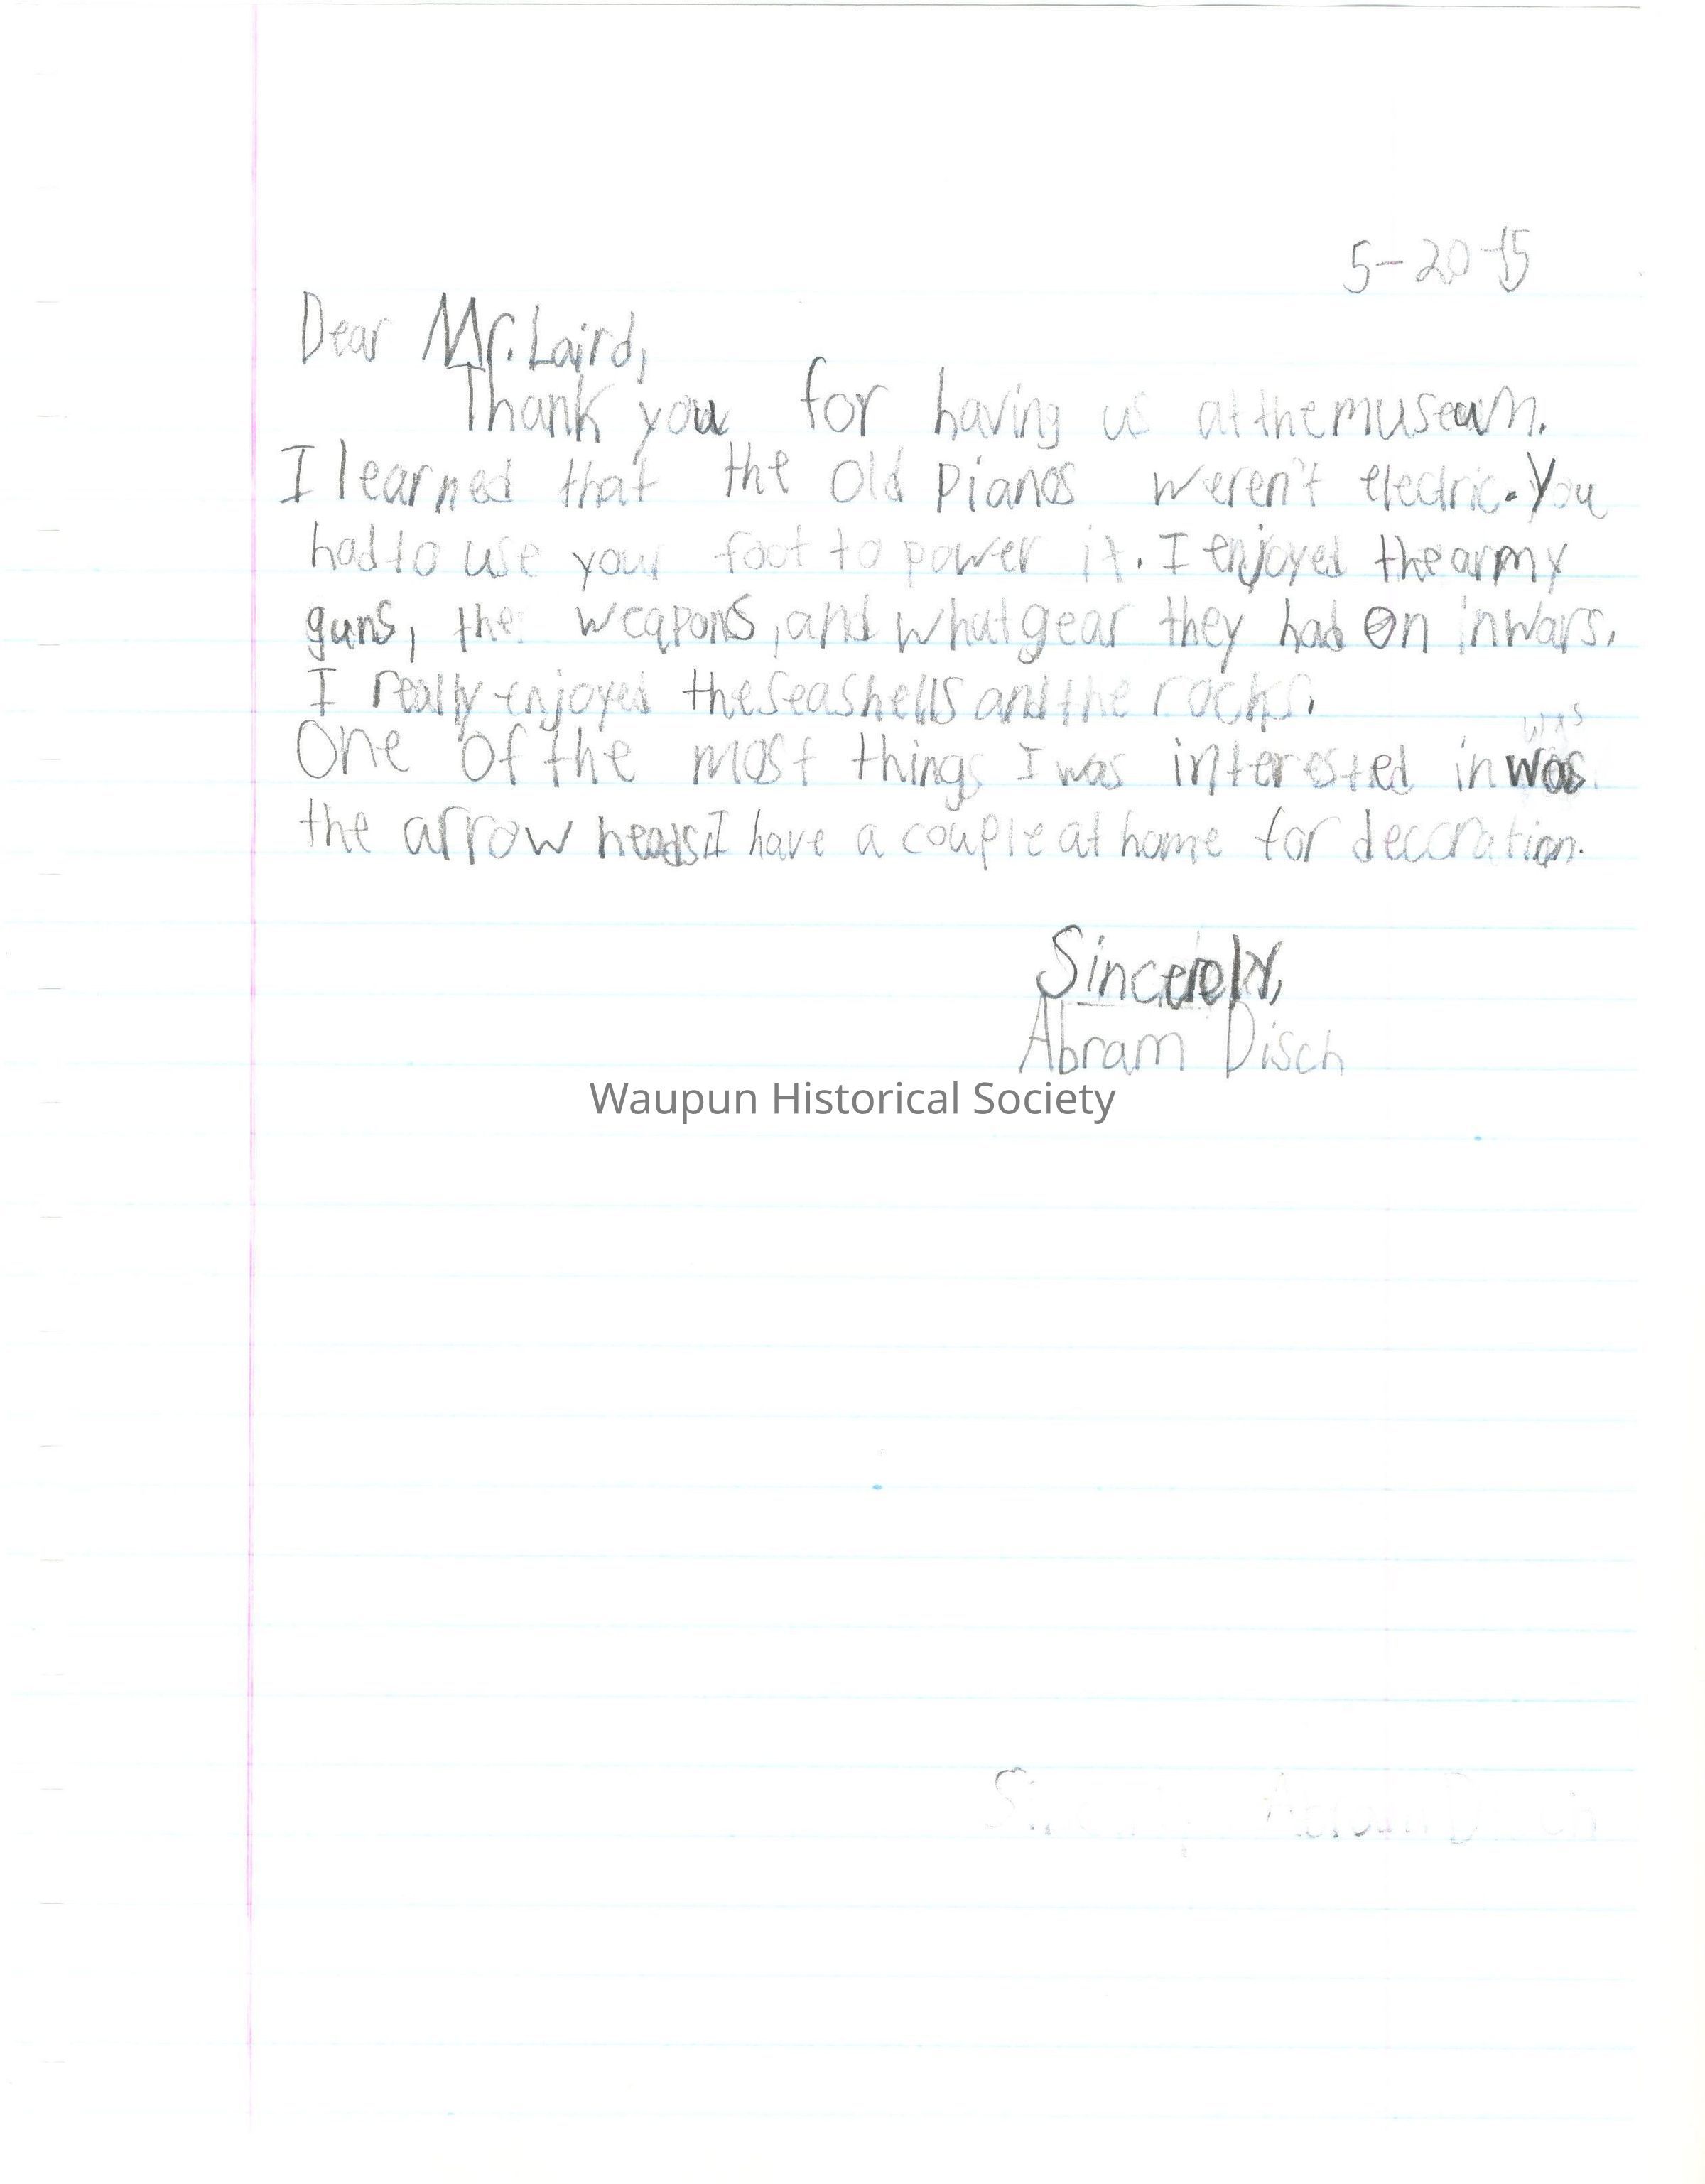 5-20-15
Dear Mr. Laird,
Thank you for having us at the museum.
I learned that the old pianos weren't electric. You
had to use your foot to power it. I enjoyed the army
guns, the weapons, and what gear they had on in wars.
I really enjoyed the seashells and the rocks.
was
One of the most things I was interested in was
the arrow heads. I have a couple at home for decoration.
Sincerely,
Abram Disch
Waupun Historical Society
Sincerely Abram Disch